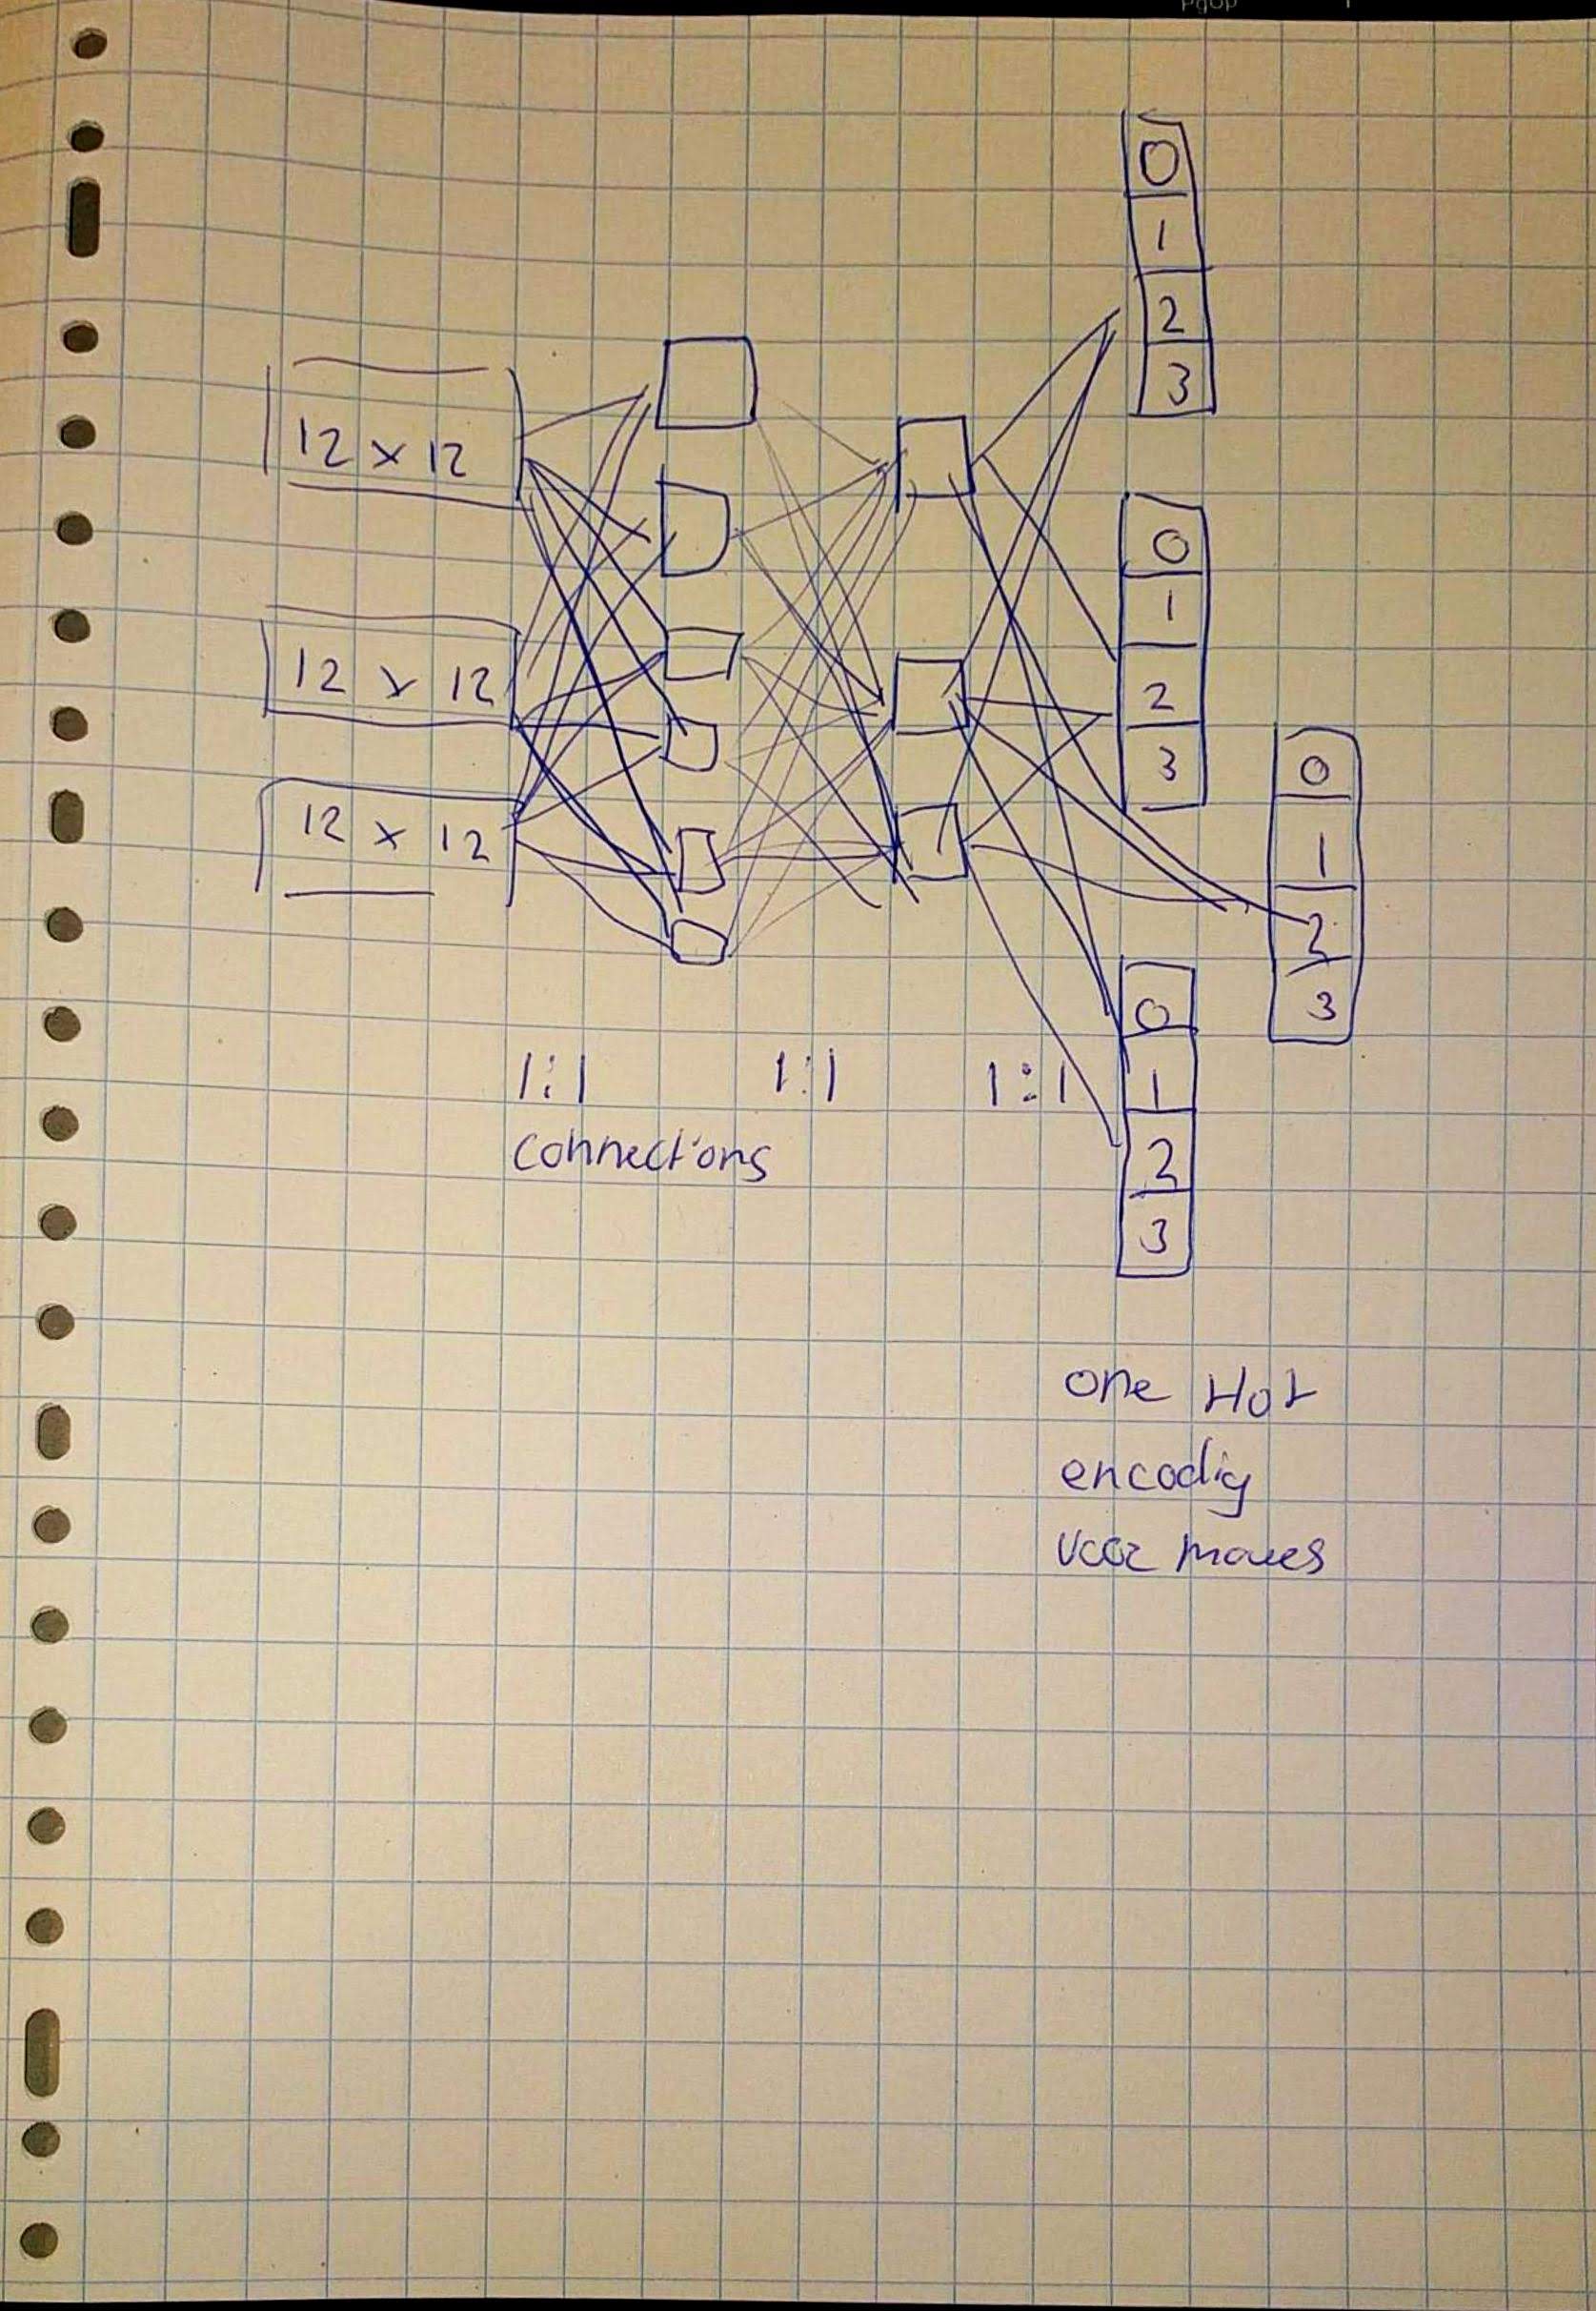 PgUp
0
1
2
3
12 x 12
0
1
2
3
12 x 12
0
1
2
3
12 x 12
0
1
2
3
1:1 1:1 1:1
connections
one Hot
encodig
voor moves